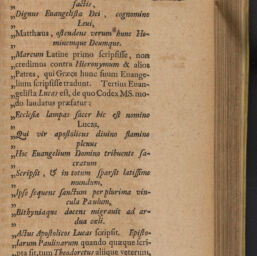 factis,
„Dignus Euangelista Dei, cognomino
Leui,
„Matthæus, ostendens verum hunc Ho-
minemque Deumque.
„Marcum Latine primo scripsisse, non
„credimus contra Hieronymum & alios
„Patres, qui Græce hunc suum Euange-
„lium scripsisse tradunt. Tertius Euan-
„gelista Lucas est, de quo Codex MS. mo-
„do laudatus præfatur:
„Ecclesiæ lampas sacer hic est nomine
Lucas,
„Qui vir apostolicus diuino flamine
plenus
„Hoc Euangelium Domino tribuente sa-
cratum
„Scripsit, & in totum sparsit latissime
mundum,
„Ipse sequens sanctum per plurima vin-
cula Paulum,
„Bithyniaque docens migrauit ad ar-
dua cœli.
„Actus Apostolicos Lucas scripsit. Episto-
„larum Paulinarum quando quæque scri-
„pta sit, tum Theodoretus aliique veterum,